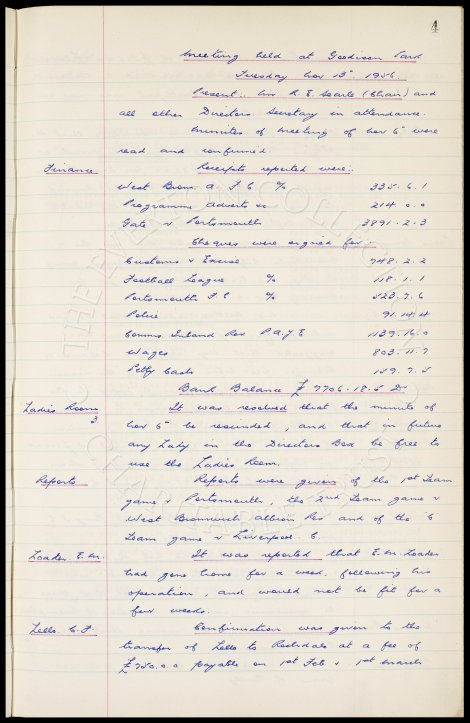 4
Meeting held at Goodison Park
Tuesday Nov 13th 1956.
Present:. Mr R. E. Searle (Chair) and
all other Directors. Secretary in attendance.
Minutes of Meeting of Nov 6th were
read and confirmed.
Finance. Receipts reported were:.
West Brom. A. F C % 335. 6. 1
Programme Adverts 214. 0. 0
Gate v Portsmouth 3891. 2. 3
Cheques were signed for:-
Customs & Excise 748. 2. 2
Football League % 118. 1. 1
Portsmouth F C % 523. 7. 6
Police 91. 14. 4
Comms. Inland Rev P.A.Y.E 1139. 16. 0
Wages 803. 11. 7
Petty Cash 159. 7. 5
Bank Balance £ 7706. 18. 5 Dr
Ladies Room It was resolved that the minute of
3 Nov 6th be rescinded, and that in future
any Lady in the Directors Box be free to
use the Ladies Room.
Reports Reports were given of the 1st Team
game v Portsmouth, the 2nd Team game v
West Bromwich Albion Res and of the "B"
Team game v Liverpool C.
Loader. E. M. It was reported that E. M. Loader
had gone home for a week, following his
operation, and would not be fit for a
few weeks.
Lello. C. F. Confirmation was given to the
transfer of Lello to Rochdale at a fee of
£750. 0. 0 payable on 1st Feb & 1st March
THE EVERTON COLLECTION
CHARITABLE TRUST